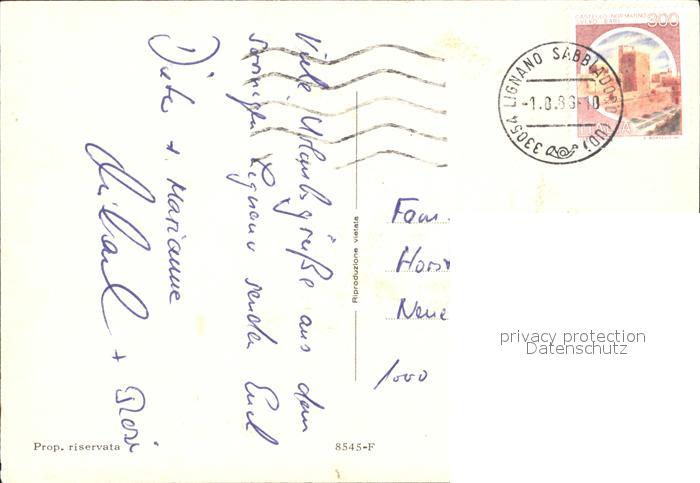 Viele Urlaubsgrüße aus dem
sonnigen Lignano senden Euch
Dieter + Marianne
Michael + Rosi
Fam.
Horst
Neue
1000
Riproduzione vietata
Prop. riservata
8545-F
CASTELLO NORMANNO
300
33054 LIGNANO SABBIADORO (UD)
-1.8.86-10
privacy protection
Datenschutz